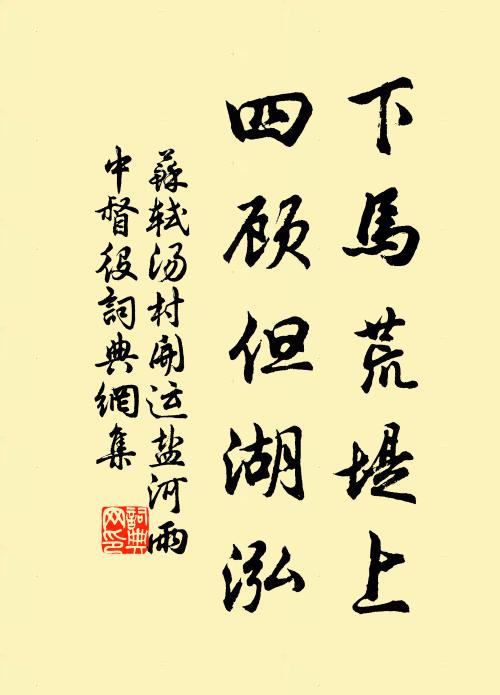 下馬荒堤上
四顾但湖泓
蘇軾汤村開运盐河雨
中督役詞典網集
詞典
网印